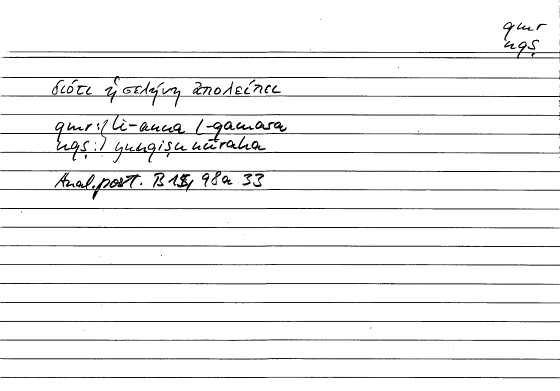 qmr
nqṣ
διότι ἡ σελήνη ἀπολείπει
qmr :) li-anna l-qamara
nqṣ :) yunqiṣu nūraha
Anal. post. B 15, 98a 33